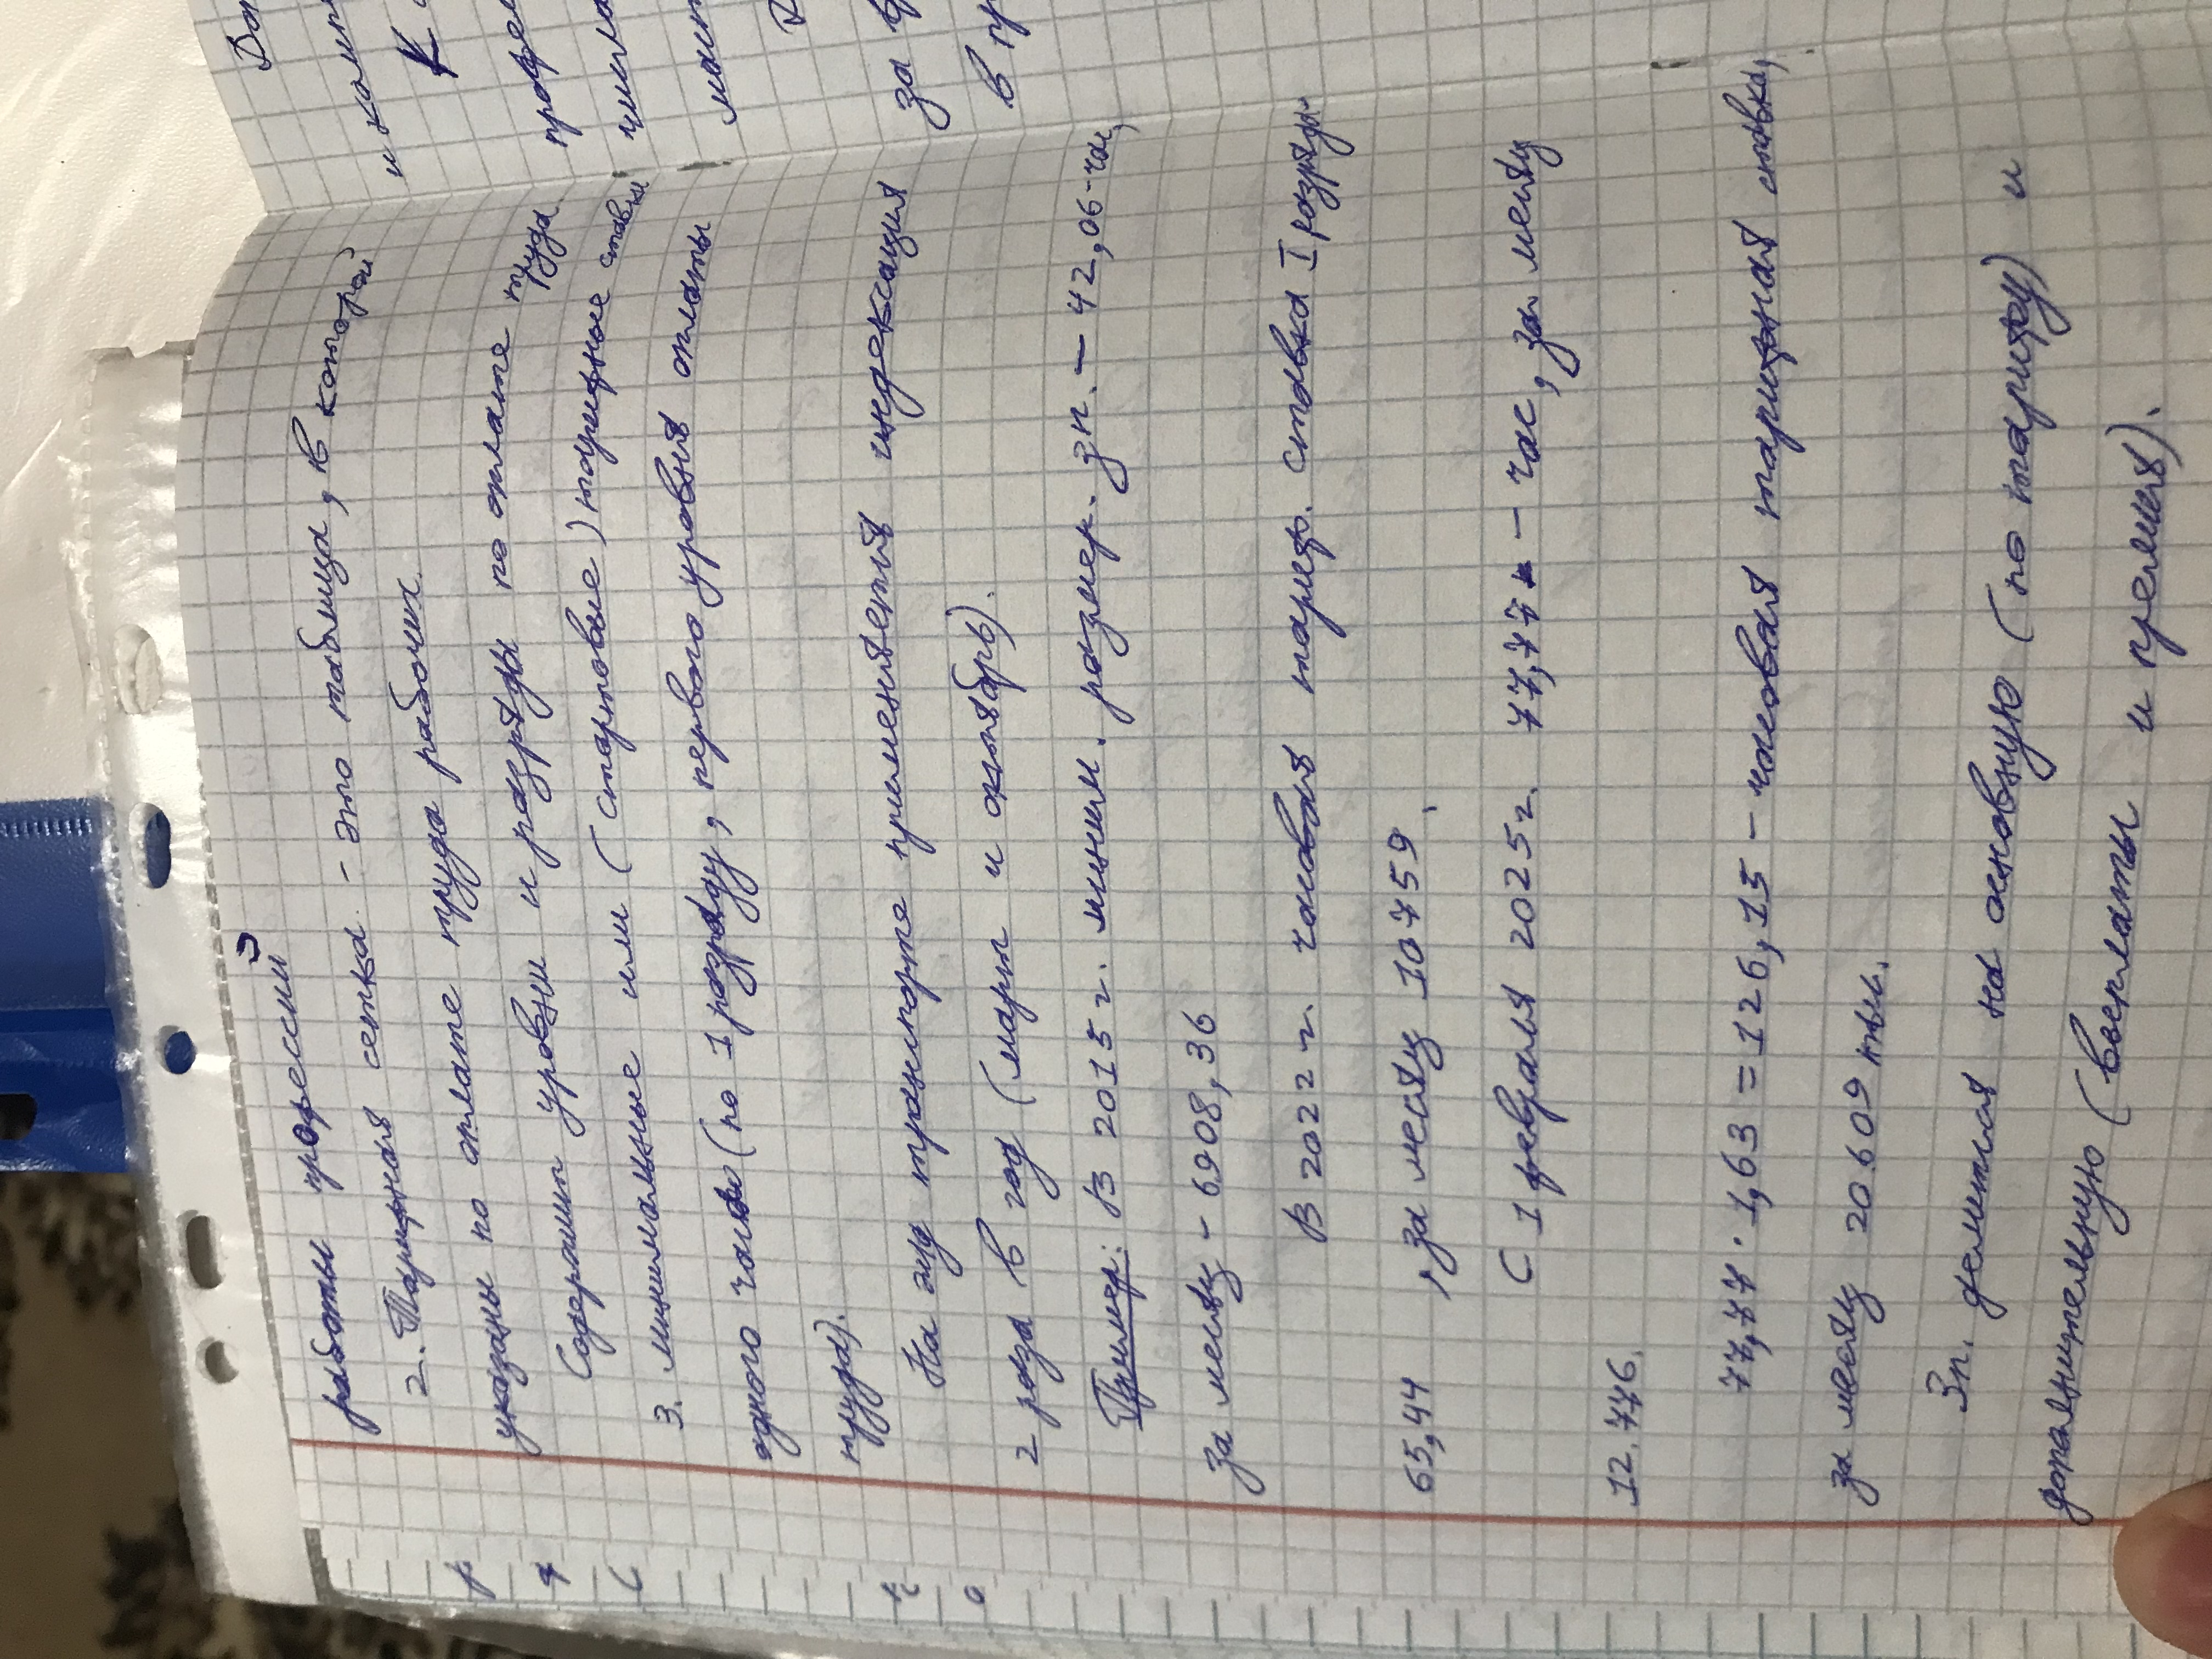 работы профессий
2. Тарифная сетка - это таблица, в которой
указаны по оплате труда рабочих.
Содержит уровни и разряды по оплате труда
3. минимальные или (стартовые) тарифные ставки
одного часа (по 1 разряду, первого уровня оплаты
труда).
На жд транспорте применяется индексация
2 раза в год (март и октябрь).
Пример: В 2015 г. миним. размер. зп. - 42,06-час,
за месяц - 6908,36
В 2022 г. часовая тариф. ставка I разряда
65,44, за месяц 10759.
С 1 февраля 2025г. 77,77 - час, за месяц
12.776.
77,77 · 1,63 = 126,15 - часовая тарифная ставка,
за месяц 20609 тыс.
Зп. делится на основную (по тарифу) и
дополнительную (выплаты и премия).
Доп
и комп
К
проф
числ
мас
за
в пр